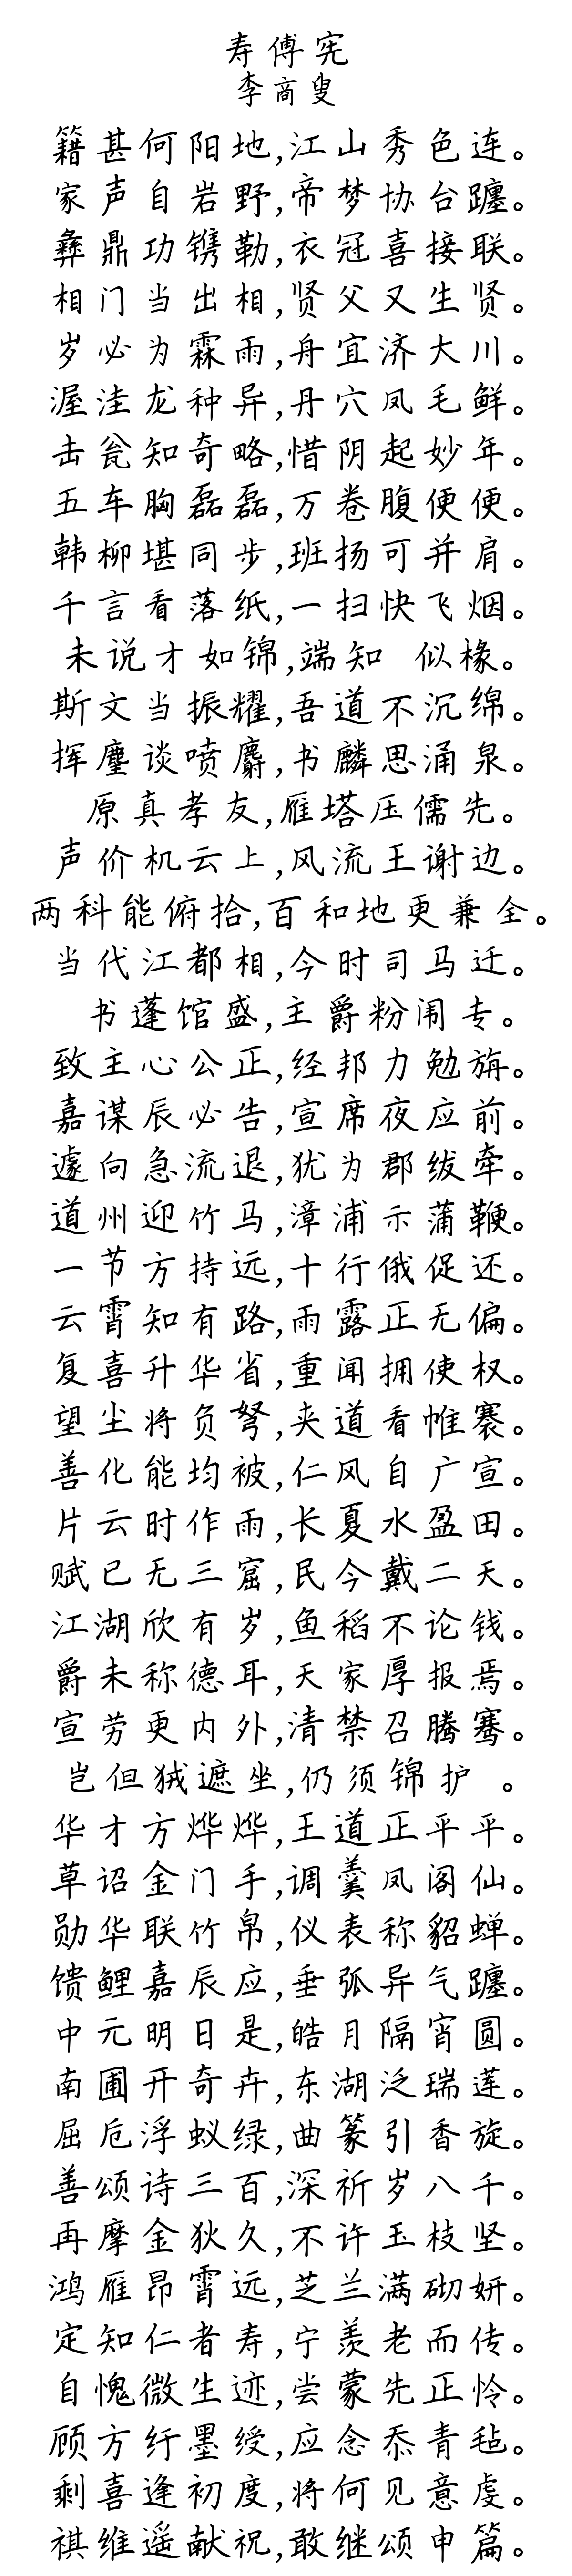 寿傅宪
李商叟
籍甚何阳地,江山秀色连。
家声自岩野,帝梦协台躔。
彝鼎功镌勒,衣冠喜接联。
相门当出相,贤父又生贤。
岁必为霖雨,舟宜济大川。
渥洼龙种异,丹穴凤毛鲜。
击瓮知奇略,惜阴起妙年。
五车胸磊磊,万卷腹便便。
韩柳堪同步,班扬可并肩。
千言看落纸,一扫快飞烟。
未说才如锦,端知 似椽。
斯文当振耀,吾道不沉绵。
挥麈谈喷麝,书麟思涌泉。
原真孝友,雁塔压儒先。
声价机云上,风流王谢边。
两科能俯拾,百和地更兼全。
当代江都相,今时司马迁。
书蓬馆盛,主爵粉闱专。
致主心公正,经邦力勉旃。
嘉谋辰必告,宣席夜应前。
遽向急流退,犹为郡绂牵。
道州迎竹马,漳浦示蒲鞭。
一节方持远,十行俄促还。
云霄知有路,雨露正无偏。
复喜升华省,重闻拥使权。
望尘将负弩,夹道看帷褰。
善化能均被,仁风自广宣。
片云时作雨,长夏水盈田。
赋已无三窟,民今戴二天。
江湖欣有岁,鱼稻不论钱。
爵未称德耳,天家厚报焉。
宣劳更内外,清禁召腾骞。
岂但狨遮坐,仍须锦护 。
华才方烨烨,王道正平平。
草诏金门手,调羹凤阁仙。
勋华联竹帛,仪表称貂蝉。
馈鲤嘉辰应,垂弧异气躔。
中元明日是,皓月隔宵圆。
南圃开奇卉,东湖泛瑞莲。
屈卮浮蚁绿,曲篆引香旋。
善颂诗三百,深祈岁八千。
再摩金狄久,不许玉枝坚。
鸿雁昂霄远,芝兰满砌妍。
定知仁者寿,宁羡老而传。
自愧微生迹,尝蒙先正怜。
顾方纡墨绶,应念忝青毡。
剩喜逢初度,将何见意虔。
祺维遥献祝,敢继颂申篇。